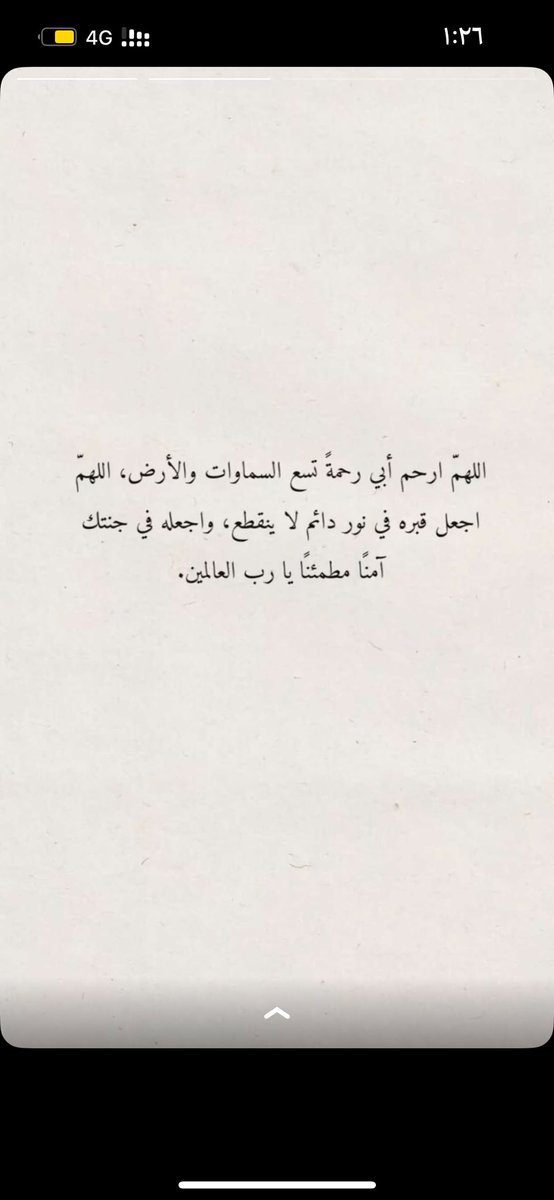 4G
١:٢٦
اللهمّ ارحم أبي رحمةً تسع السماوات والأرض، اللهمّ
اجعل قبره في نور دائم لا ينقطع، واجعله في جنتك
آمنًا مطمئنًا يا رب العالمين.